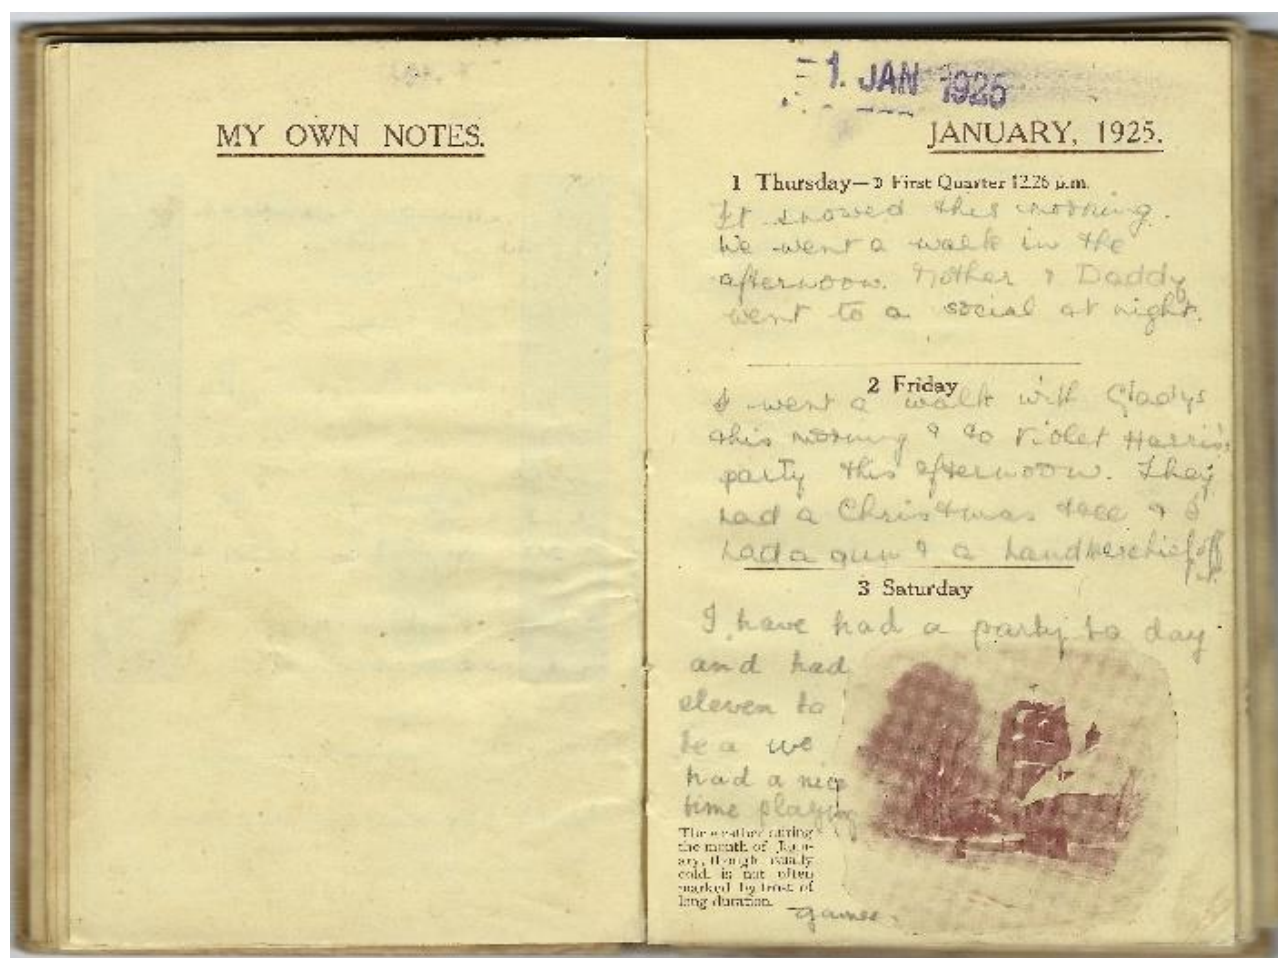 MY OWN NOTES.
1 JAN 1925
JANUARY, 1925.
1 Thursday—☽ First Quarter 12.26 p.m.
It snowed this morning.
We went a walk in the
afternoon. Mother & Daddy
went to a social at night.
2 Friday
I went a walk with Gladys
this morning & to Violet Harris,
party this afternoon. They
had a Christmas tree & I
had a gun & a handkerchief off
3 Saturday
I have had a party to day
and had
eleven to
tea we
had a nice
time playing
The weather during
the month of Janu-
ary, though usually
cold, is not often
marked by frost of
long duration.
games.